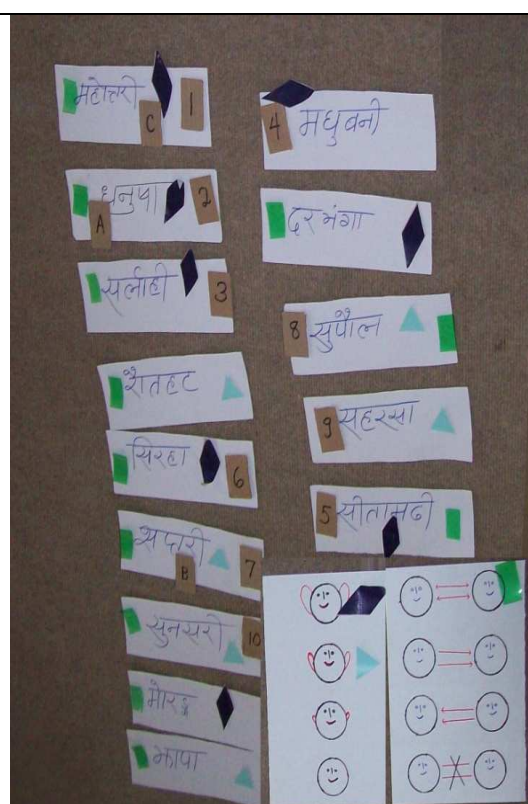 महोत्तरी
C 1
धनुषा
A 2
सर्लाही 3
रौतहट
सिरहा 6
सप्तरी
B 7
सुनसरी 10
मोरङ
झापा
4 मधुवनी
दरभंगा
8 सुपौल
9 सहरसा
5 सीतामढी